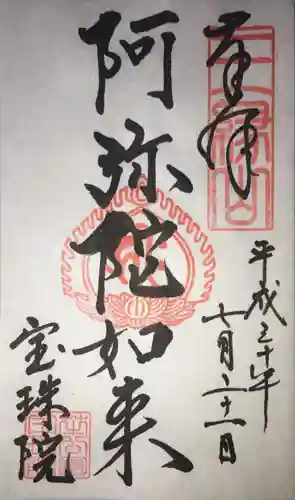 奉拝
平成三十年
七月二十一日
阿弥陀如来
宝珠院